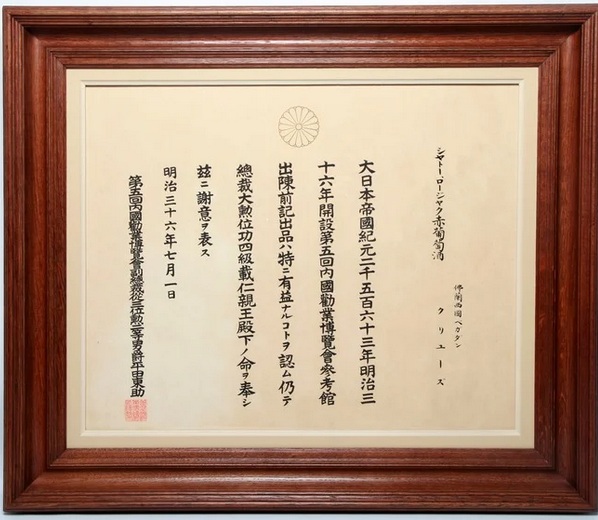 シャトー、ロージャク赤葡萄酒
佛蘭西國ベカダン
クリユーズ
大日本帝國紀元二千五百六十三年明治三
十六年開設第五回内國勸業博覽會參考館
出陳前記出品ハ特ニ有益ナルコトヲ認ム仍テ
總裁大勲位功四級載仁親王殿下ノ命ヲ奉シ
玆ニ謝意ヲ表ス
明治三十六年七月一日
第五回内國勸業博覽會副總裁從三位勲一等男爵平田東助